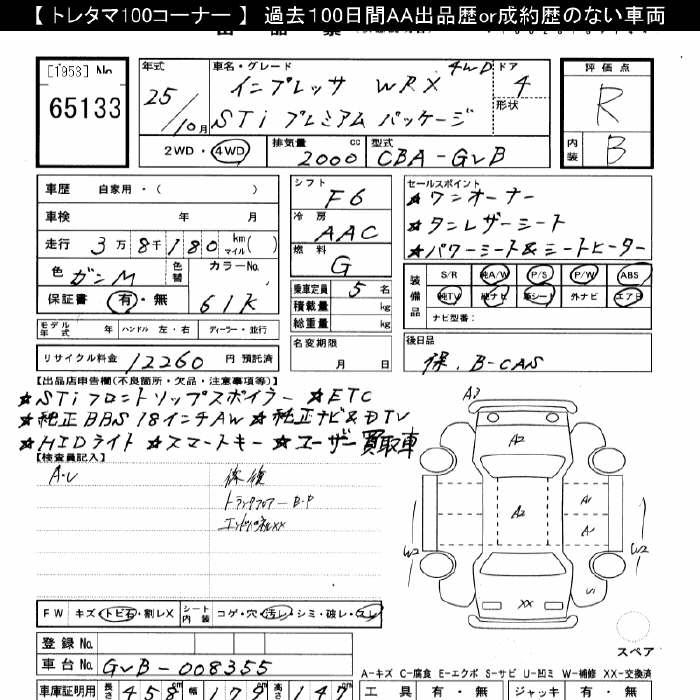 【 トレタマ100コーナー 】 過去100日間AA出品歴or成約歴のない車両
[1953] No
65133
年式 25/10月
車名・グレード インプレッサ WRX 4WD
STi プレミアム パッケージ
ドア 4
形状
評価点 R
内装 B
2WD・4WD
排気量 2000 cc
型式 CBA-GVB
車歴 自家用・( )
車検 年 月
走行 3万8千180 km マイル( )
色 ガンM 色替
カラーNo. 61K
保証書 有・無
シフト F6
冷房 AAC
燃料 G
乗車定員 5名
積載量 kg
総重量 kg
セールスポイント
★ワンオーナー
★タンレザーシート
★パワーシート&シートヒーター
装備品 S/R 純A/W P/S P/W ABS
純TV 純ナビ 革シート 外ナビ エアB
ナビ型番:
モデル年式 年 ハンドル 左・右 ディーラー・並行
名変期限 月 日
後日品 保、B-CAS
リサイクル料金 12260 円 預託済
【出品店申告欄(不良箇所・欠品・注意事項等)】
★STiフロントリップスポイラー ★ETC
★純正BBS 18インチAW ★純正ナビ&DTV
★HIDライト ★スマートキー ★ユーザー買取車
【検査員記入】
修復
トランクフロアーB・P
エンドパネルXX
A3
A2
A2
A1
A1
W2
W2
S1
XX
スペア
FW キズ・トビ石・割レX シート内装 コゲ・穴・汚レ・シミ・破レ・スレ
登録No.
車台No. GVB-008355
A-キズ C-腐食 E-エクボ S-サビ U-凹ミ W-補修 XX-交換済
車庫証明用 長さ 458cm 幅 179cm 高さ 147cm
工具 有・無 ジャッキ 有・無